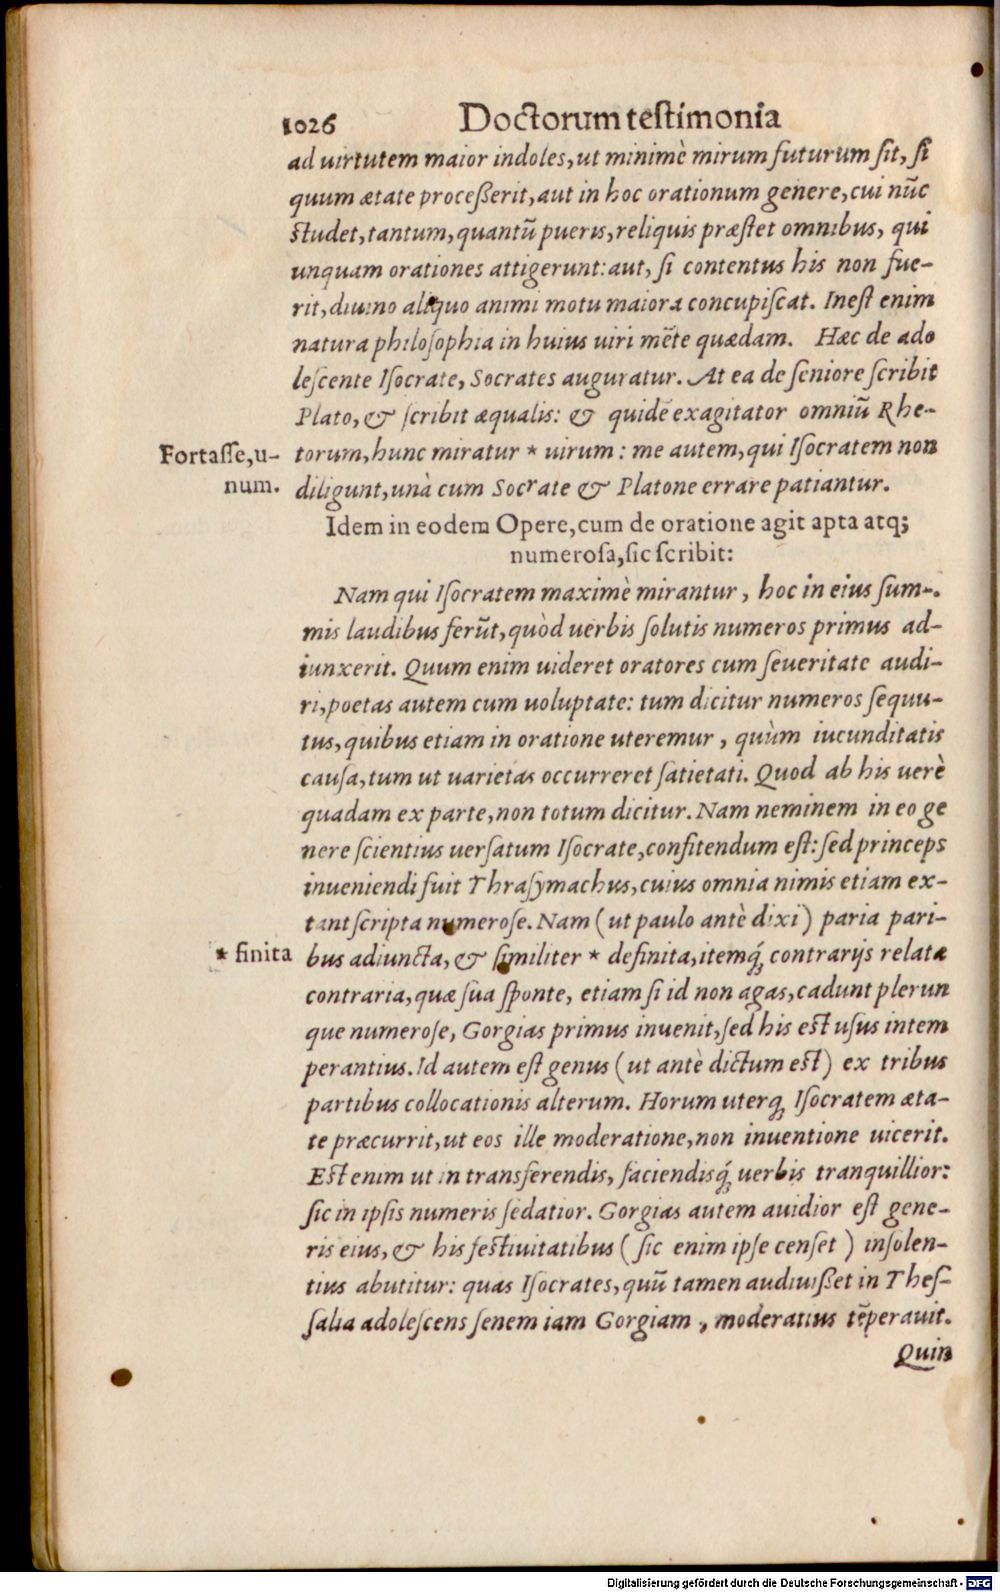 1026 Doctorum teſtimonia
ad uirtutem maior indoles, ut minimè mirum futurum ſit, ſi
quum ætate proceßerit, aut in hoc orationum genere, cui nūc
ſtudet, tantum, quantū pueris, reliquis præſtet omnibus, qui
unquam orationes attigerunt: aut, ſi contentus his non fue-
rit, diuino aliquo animi motu maiora concupiſcat. Ineſt enim
natura philoſophia in huius uiri mēte quædam. Hæc de ado
leſcente Iſocrate, Socrates auguratur. At ea de ſeniore ſcribit
Plato, & ſcribit æqualis: & quidē exagitator omniū Rhe-
Fortaſſe, u-
num.
torum, hunc miratur * uirum: me autem, qui Iſocratem non
diligunt, unà cum Socrate & Platone errare patiantur.
Idem in eodem Opere, cum de oratione agit apta atq;
numeroſa, ſic ſcribit:
Nam qui Iſocratem maximè mirantur, hoc in eius ſum-
mis laudibus ferūt, quòd uerbis ſolutis numeros primus ad-
iunxerit. Quum enim uideret oratores cum ſeueritate audi-
ri, poetas autem cum uoluptate: tum dicitur numeros ſequu-
tus, quibus etiam in oratione uteremur, quùm iucunditatis
cauſa, tum ut uarietas occurreret ſatietati. Quod ab his uerè
quadam ex parte, non totum dicitur. Nam neminem in eo ge
nere ſcientius uerſatum Iſocrate, confitendum eſt: ſed princeps
inueniendi fuit Thraſymachus, cuius omnia nimis etiam ex-
tant ſcripta numeroſe. Nam (ut paulo antè dixi) paria pari-
* finita
bus adiuncta, & ſimiliter * definita, itemq́; contrarijs relata
contraria, quæ ſua ſponte, etiam ſi id non agas, cadunt plerun
que numeroſe, Gorgias primus inuenit, ſed his eſt uſus intem
perantius. Id autem eſt genus (ut antè dictum eſt) ex tribus
partibus collocationis alterum. Horum uterq; Iſocratem æta-
te præcurrit, ut eos ille moderatione, non inuentione uicerit.
Eſt enim ut in transferendis, faciendisq́; uerbis tranquillior:
ſic in ipſis numeris ſedatior. Gorgias autem auidior eſt gene-
ris eius, & his feſtiuitatibus (ſic enim ipſe cenſet) inſolen-
tius abutitur: quas Iſocrates, quū tamen audiuißet in Theſ-
ſalia adoleſcens ſenem iam Gorgiam, moderatius tēperauit.
Quin
Digitalisierung gefördert durch die Deutsche Forschungsgemeinschaft - DFG